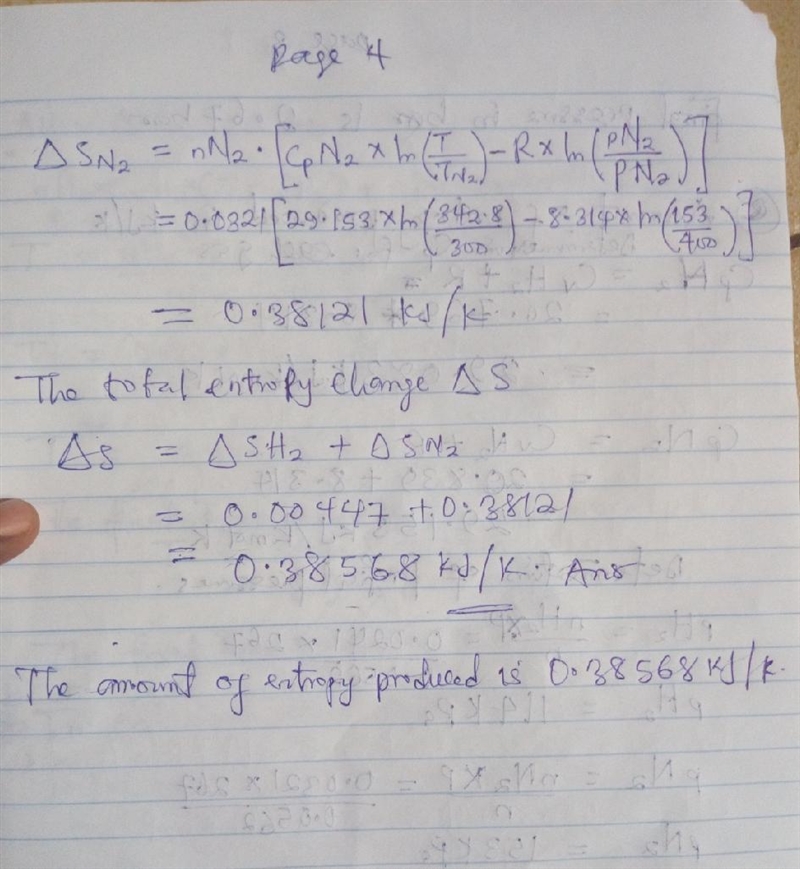 Page 4
ΔSN₂ = nN₂ · [CpN₂ × ln(T/TN₂) − R × ln(pN₂/PN₂)]
= 0.0321[29.153 × ln(342.8/300) − 8.314 × ln(153/400)]
= 0.38121 kJ/K
The total entropy change ΔS
ΔS = ΔSH₂ + ΔSN₂
= 0.00447 + 0.38121
= 0.38568 kJ/K. Ans
The amount of entropy produced is 0.38568 kJ/K.